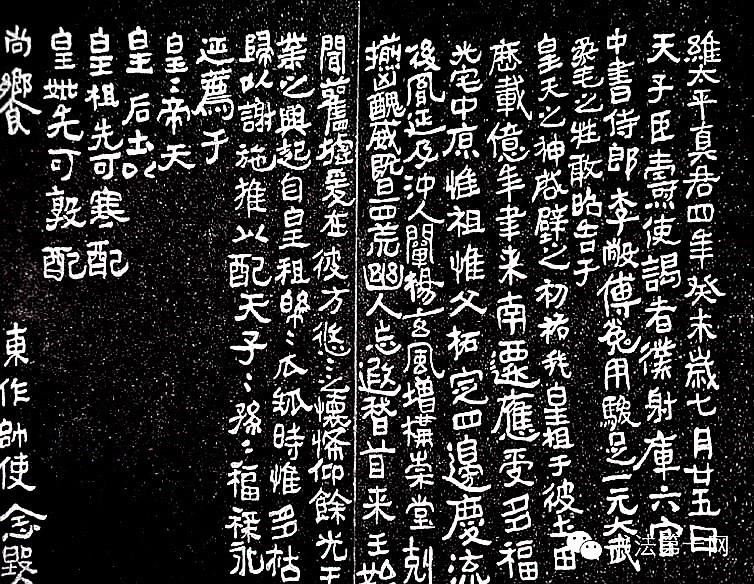 維太平真君四年癸未歲七月廿五日
天子臣燾使謁者僕射庫六官
中書侍郎李敞傅㝹用駿足一元大武
柔毛之牲敢昭告于
皇天之神啓辟之初祐我皇祖于彼土田
歷載億年聿来南遷應受多福
光宅中原惟祖惟父拓定四邊慶流
後胤延及沖人闡揚玄風增構崇堂剋
揃凶醜威暨四荒幽人忘遐稽首来王始
聞舊墟爰在彼方悠〻之懷希仰餘光王
業之興起自皇祖綿〻瓜瓞時惟多祜
歸以謝施推以配天子〻孫〻福祿永
延薦于
皇〻帝天
皇 后土以
皇祖先可寒配
皇妣先可敦配
尚饗 東作帥使念鑿
法第一网